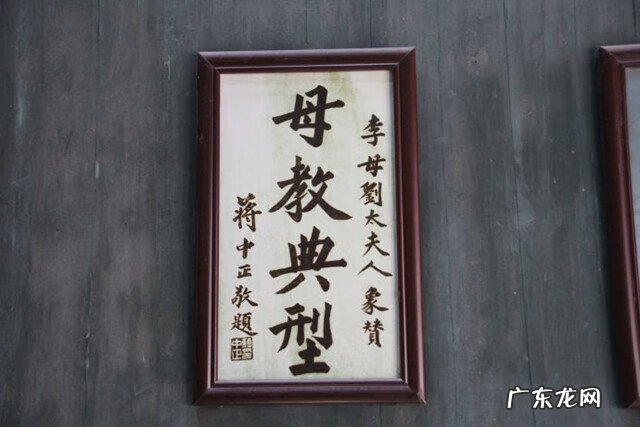 李母劉太夫人象贊
母教典型
蔣中正敬題
广东龙网